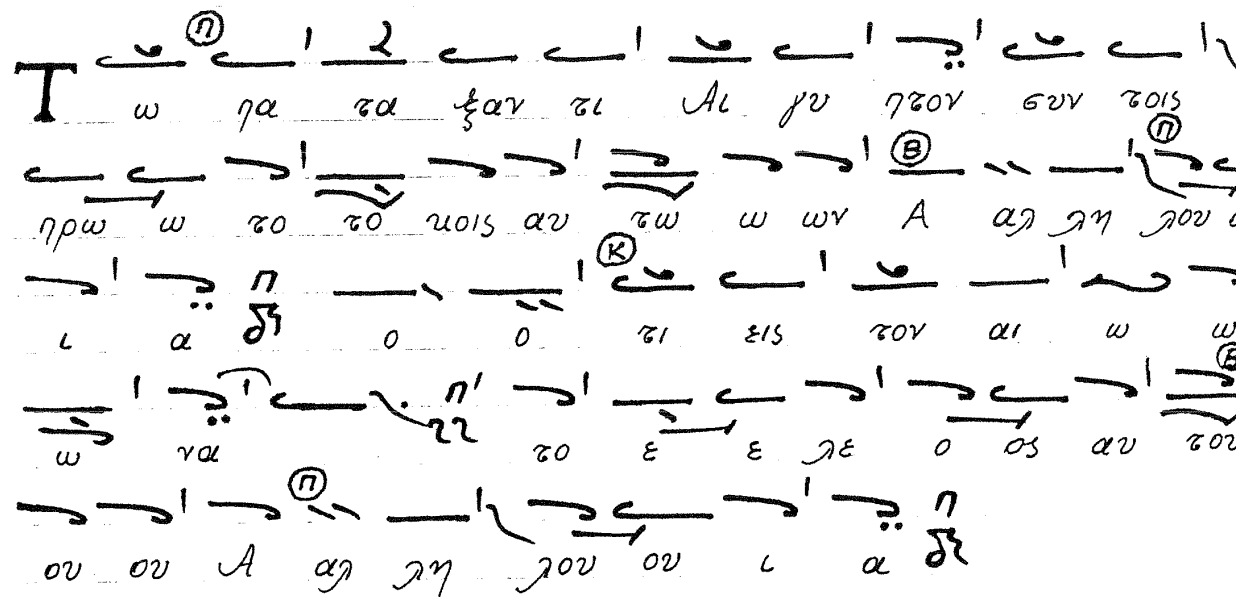 Τ ω πα τα ξαν τι Αι γυ πτον συν τοις
πρω ω το το κοις αυ τω ω ων Α αλ λη λου
ι α ο ο τι εις τον αι ω ω
ω να το ε ε λε ο ος αυ του
ου ου Α αλ λη λου ου ι α